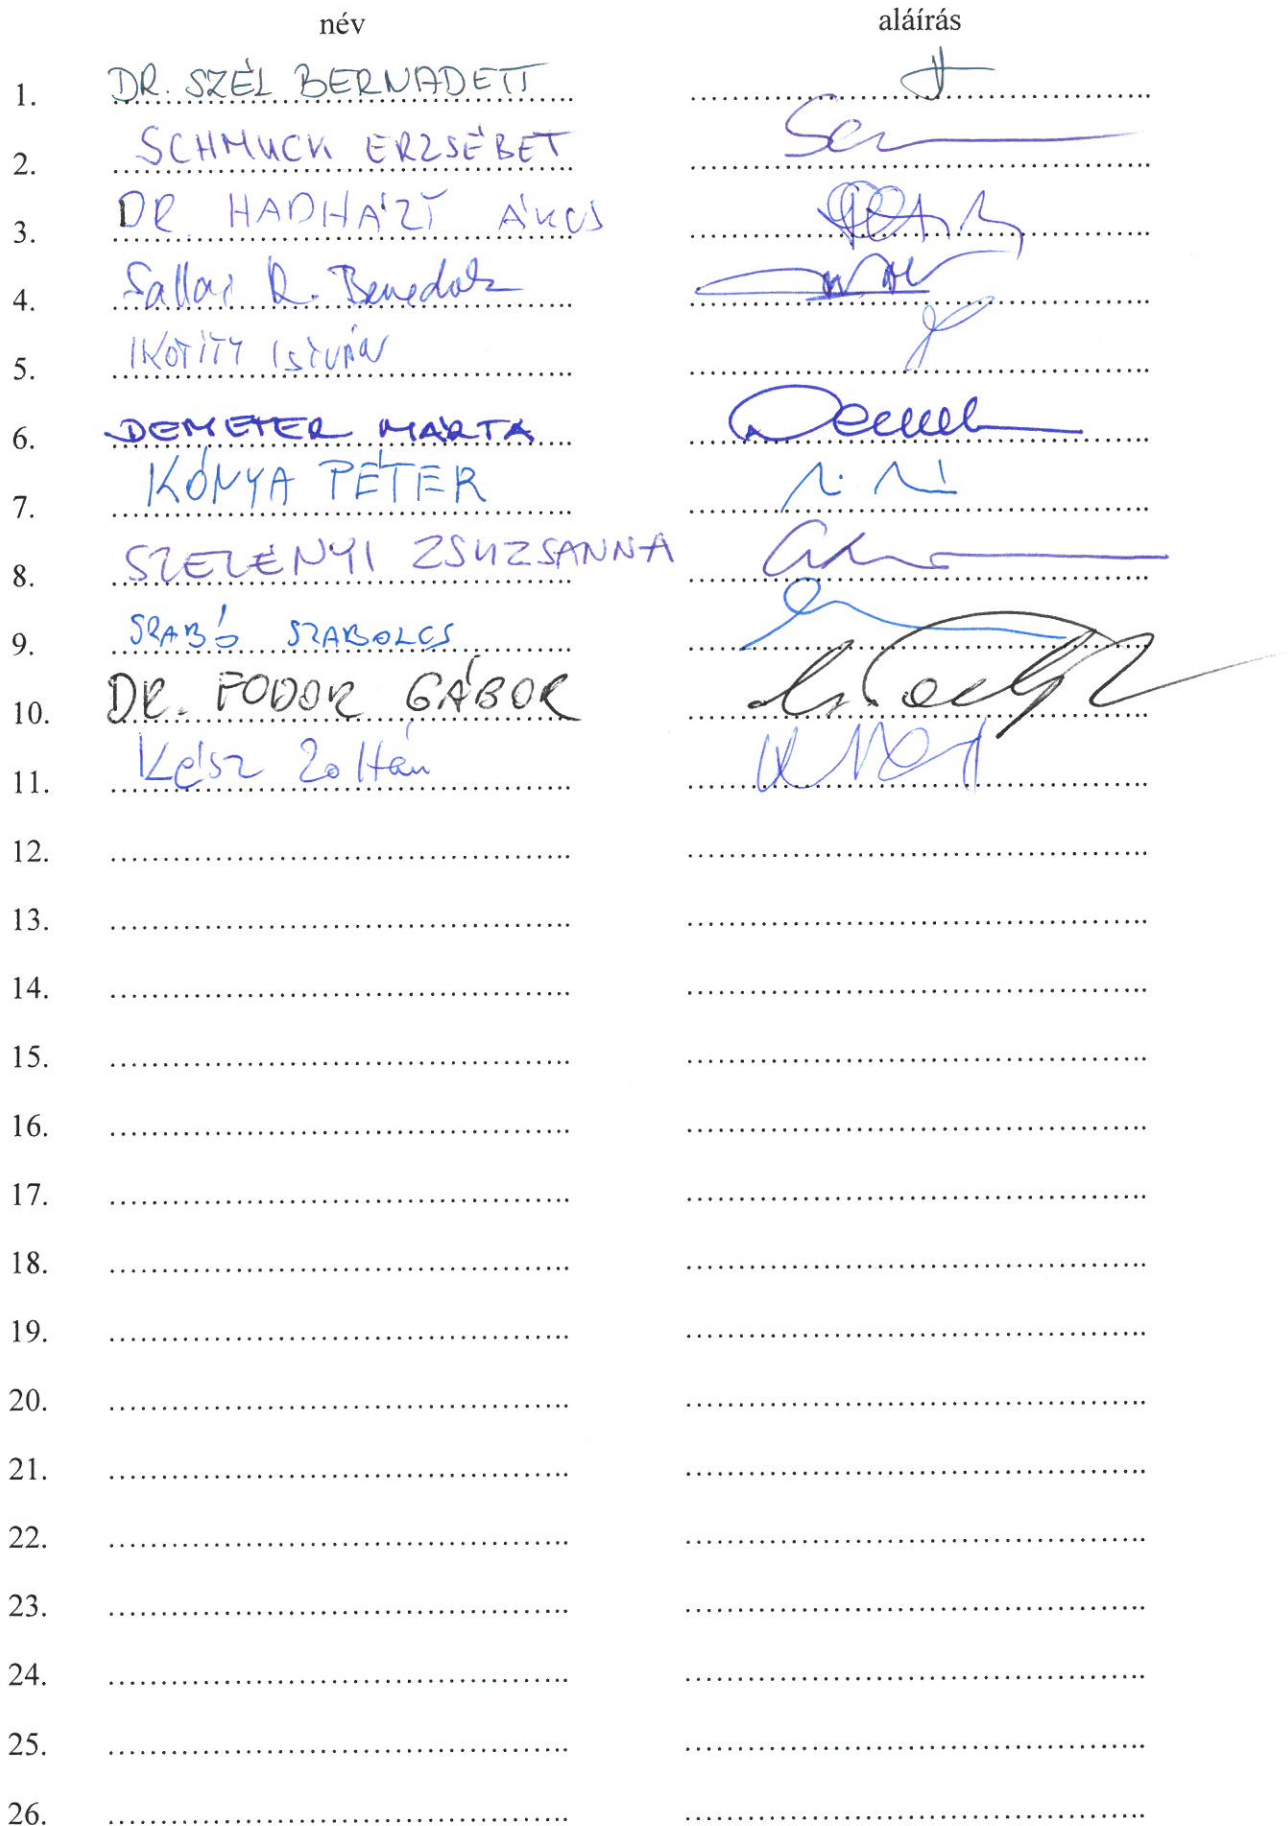 név aláírás
1. DR. SZÉL BERNADETT
2. SCHMUCK ERZSÉBET
3. DR. HADHÁZY ÁKOS
4. Sallai R. Benedek
5. IKOTITY ISTVÁN
6. DEMETER MÁRTA
7. KÓNYA PÉTER
8. SZELÉNYI ZSUZSANNA
9. SZABÓ SZABOLCS
10. DR. FODOR GÁBOR
11. Kész Zoltán
12.
13.
14.
15.
16.
17.
18.
19.
20.
21.
22.
23.
24.
25.
26.